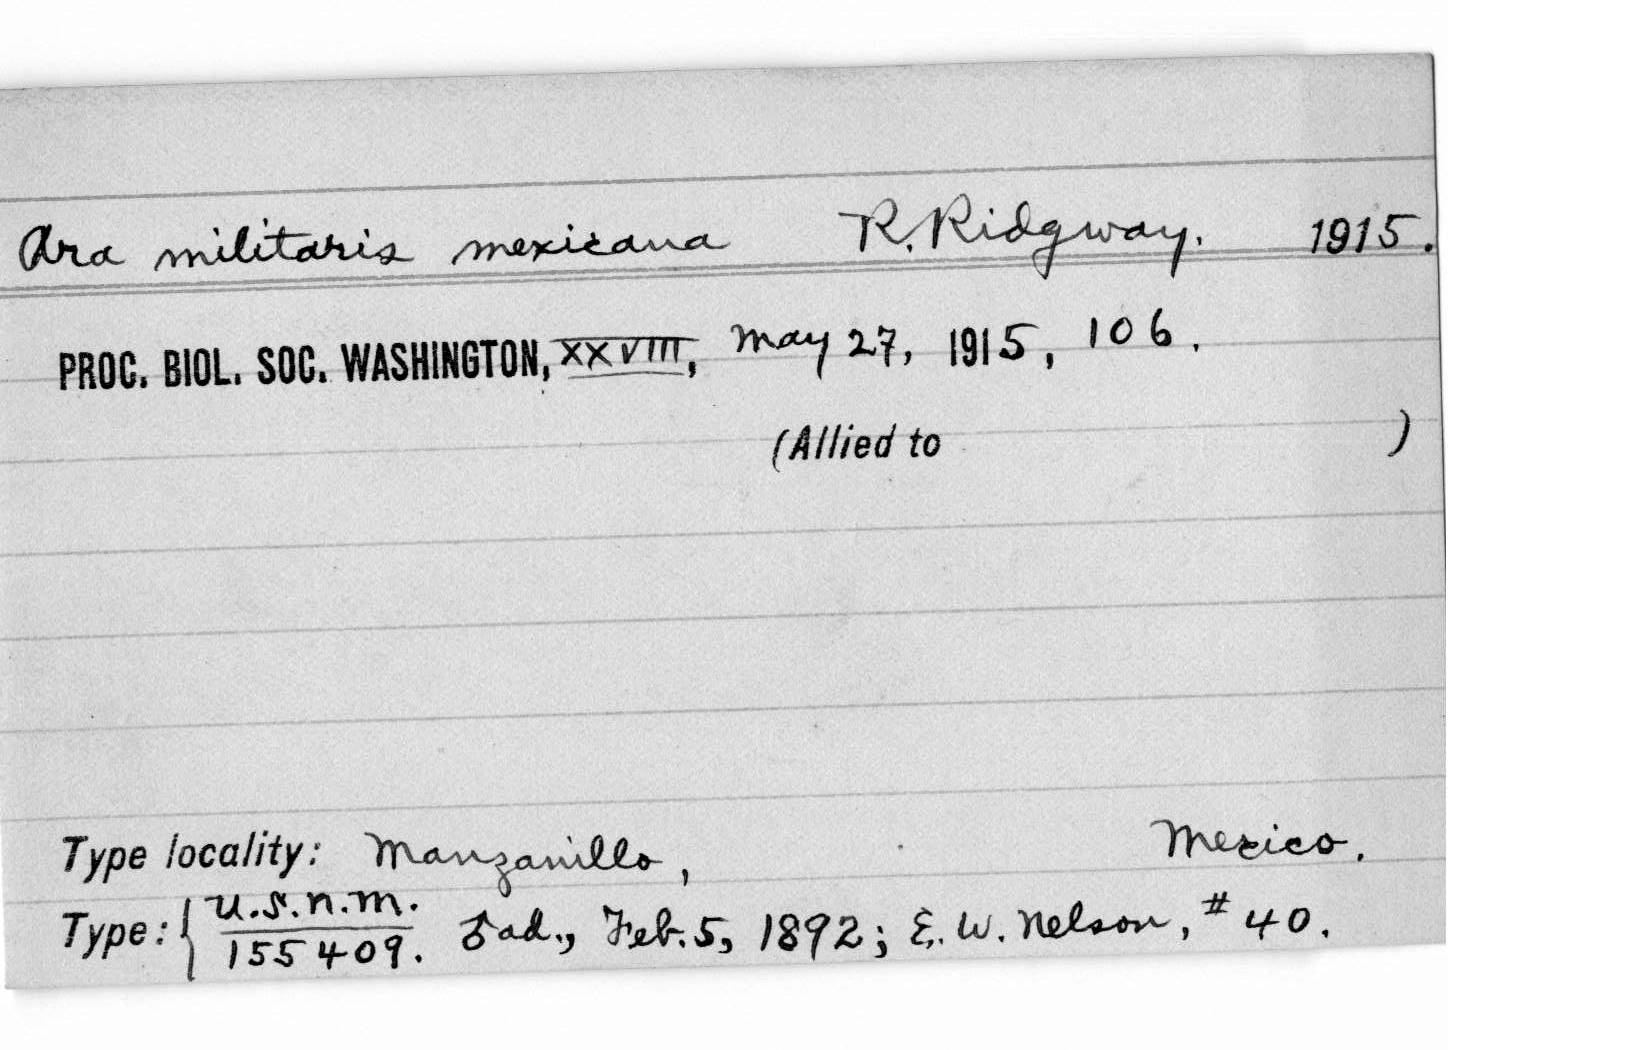 Ara militaris mexicana R. Ridgway. 1915.
PROC. BIOL. SOC. WASHINGTON, XXVIII, May 27, 1915, 106.
(Allied to )
Type locality: Manzanillo, Mexico.
Type: { U.S.N.M.
155409. ♂ ad., Feb. 5, 1892; E. W. Nelson, # 40.